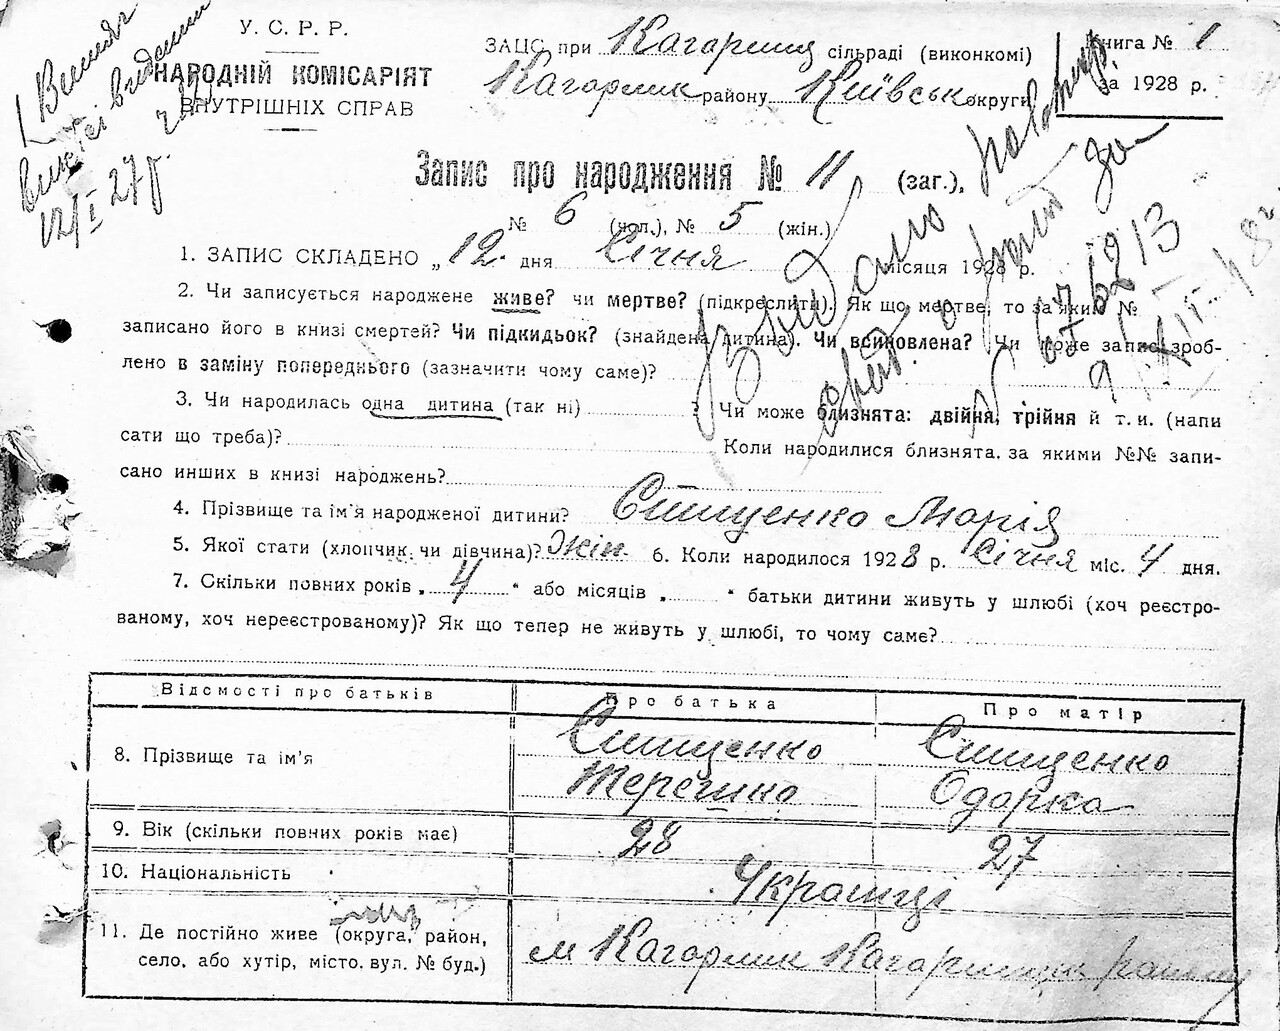 У. С. Р. Р.
НАРОДНІЙ КОМІСАРІЯТ
ВНУТРІШНІХ СПРАВ
12/I 27р.
ЗАЦС при Кагарлиц сільраді (виконкомі)
Кагарлик району Київськ округи
Книга № 1
за 1928 р.
Запис про народження № 11 (заг.),
№ 6 (чол.), № 5 (жін.)
1. ЗАПИС СКЛАДЕНО „12" дня Січня місяця 1928 р.
2. Чи записується народжене живе? чи мертве? (підкреслити). Як що мертве, то за яким №
записано його в книзі смертей? Чи підкидьок? (знайдена дитина). Чи всиновлена? Чи може запис зроб-
лено в заміну попереднього (зазначити чому саме)?
3. Чи народилась одна дитина (так ні) ? Чи може близнята: двійня, трійня й т. и. (напи
сати що треба)? Коли народилися близнята, за якими №№ запи-
сано инших в книзі народжень?
4. Прізвище та ім'я народженої дитини? Єпищенко Марія
5. Якої стати (хлопчик чи дівчина)? Жін. 6. Коли народилося 1928 р. Січня міс. 4 дня.
7. Скільки повних років „ 4 " або місяців „ " батьки дитини живуть у шлюбі (хоч реєстро-
ваному, хоч нереєстрованому)? Як що тепер не живуть у шлюбі, то чому саме?
Відомості про батьків Про батька Про матір
8. Прізвище та ім'я Єпищенко Терешко Єпищенко Одарка
9. Вік (скільки повних років має) 28 27
10. Національність Українці
11. Де постійно живе (округа, район,
село, або хутір, місто, вул. № буд.) м Кагарлик Кагарлицьк району
Видано
676213